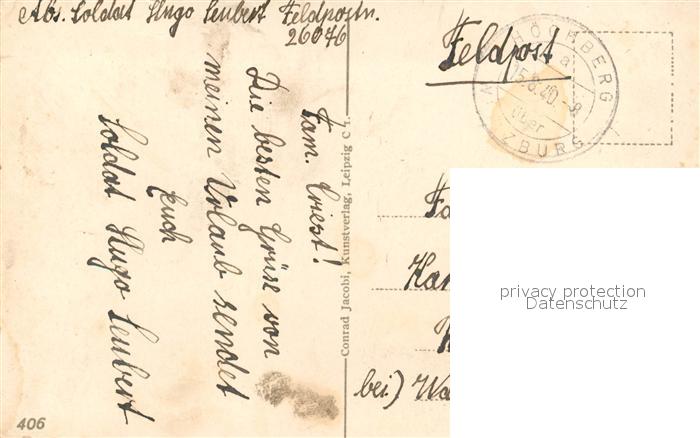 Abs. Soldat Hugo Seubert Feldpostn.
26076
Feldpost
HÖCHBERG
a
15.8.40.-8
über
ZBURG
Fam. Griest!
Die besten Grüse von
meinen Urlaub sendet
Euch
Soldat Hugo Seubert
Conrad Jacobi, Kunstverlag, Leipzig C 1.
Fa
Kar
bei) Wa
privacy protection
Datenschutz
406